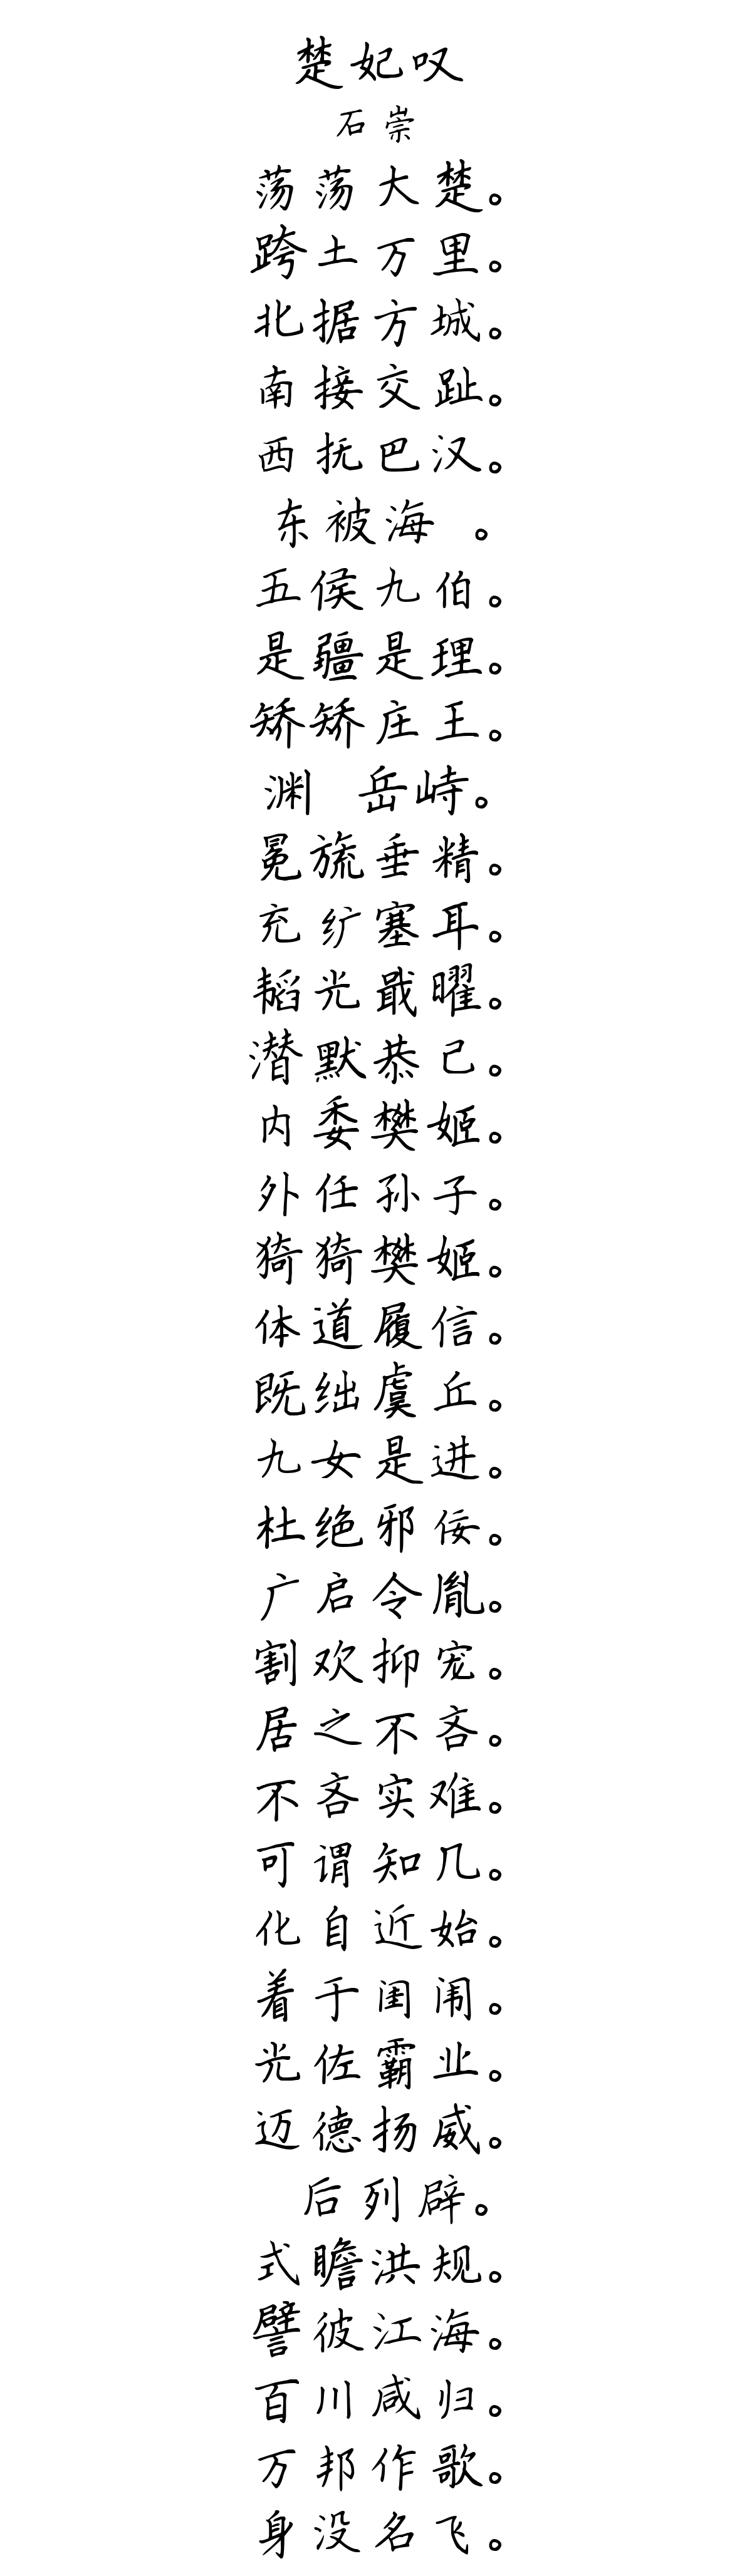 楚妃叹
石崇
荡荡大楚。
跨土万里。
北据方城。
南接交趾。
西抚巴汉。
东被海 。
五侯九伯。
是疆是理。
矫矫庄王。
渊 岳峙。
冕旒垂精。
充纩塞耳。
韬光戢曜。
潜默恭己。
内委樊姬。
外任孙子。
猗猗樊姬。
体道履信。
既绌虞丘。
九女是进。
杜绝邪佞。
广启令胤。
割欢抑宠。
居之不吝。
不吝实难。
可谓知几。
化自近始。
着于闺闱。
光佐霸业。
迈德扬威。
后列辟。
式瞻洪规。
譬彼江海。
百川咸归。
万邦作歌。
身没名飞。